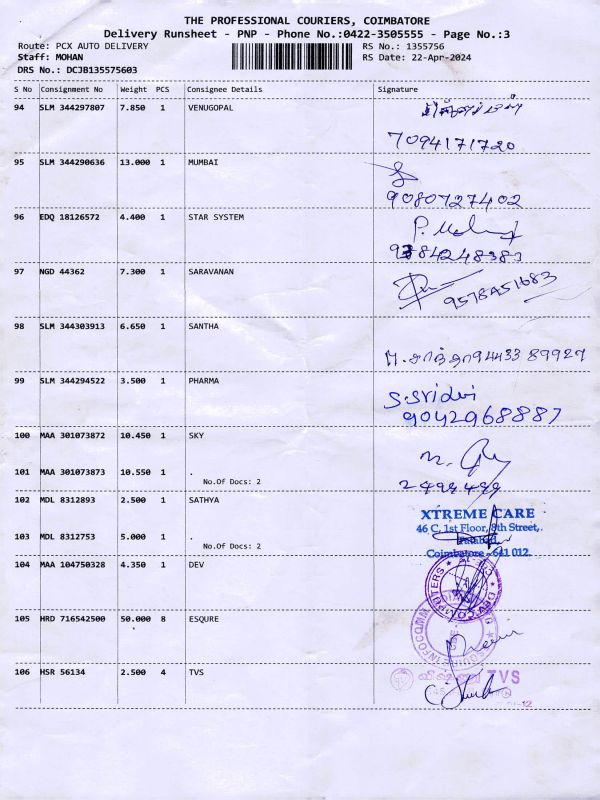 THE PROFESSIONAL COURIERS, COIMBATORE
Delivery Runsheet - PNP - Phone No.:0422-3505555 - Page No.:3
Route: PCX AUTO DELIVERY RS No.: 1355756
Staff: MOHAN RS Date: 22-Apr-2024
DRS No.: DCJB135575603
S No Consignment No Weight PCS Consignee Details Signature
94 SLM 344297807 7.850 1 VENUGOPAL
7094171720
95 SLM 344290636 13.000 1 MUMBAI
9080727402
96 EDQ 18126572 4.400 1 STAR SYSTEM
97 NGD 44362 7.300 1 SARAVANAN
98 SLM 344303913 6.650 1 SANTHA
M. சாந்தா 94433 89927
99 SLM 344294522 3.500 1 PHARMA
S.Sridevi
9042968887
100 MAA 301073872 10.450 1 SKY
101 MAA 301073873 10.550 1 .
No.Of Docs: 2
2499499
102 MDL 8312893 2.500 1 SATHYA
XTREME CARE
46 C, 1st Floor, 8th Street,
103 MDL 8312753 5.000 1 .
No.Of Docs: 2
Coimbatore - 641 012.
104 MAA 104750328 4.350 1 DEV
105 HRD 716542500 50.000 8 ESQURE
106 HSR 56134 2.500 4 TVS
TVS